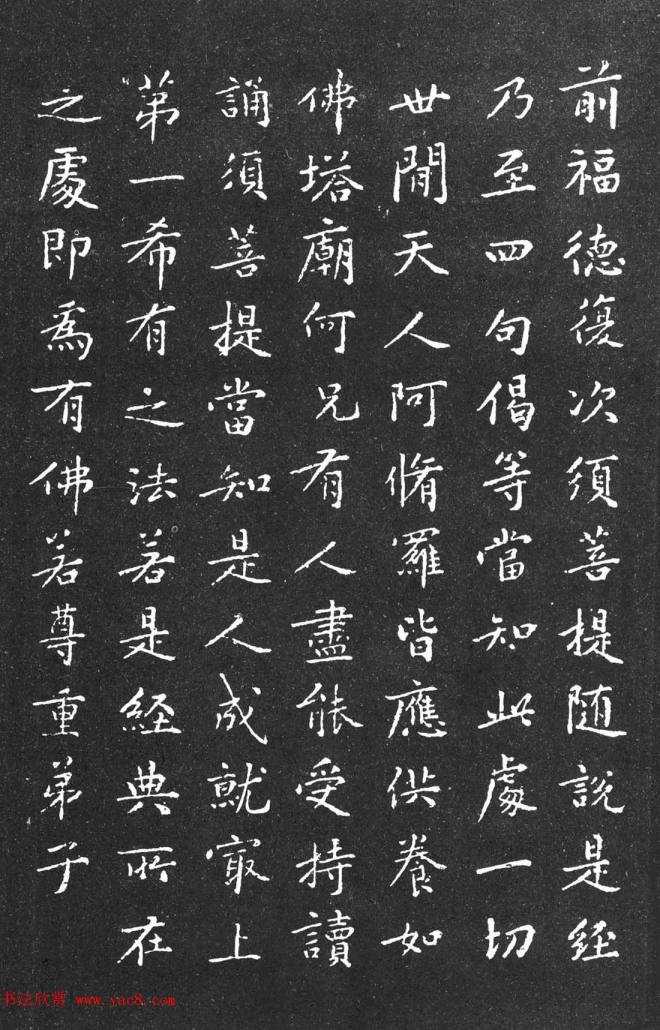 前福德復次須菩提随說是經
乃至四句偈等當知此處一切
世間天人阿脩羅皆應供養如
佛塔廟何况有人盡能受持讀
誦須菩提當知是人成就㝡上
第一希有之法若是經典所在
之處即為有佛若尊重弟子
书法欣赏 www.yac8.com